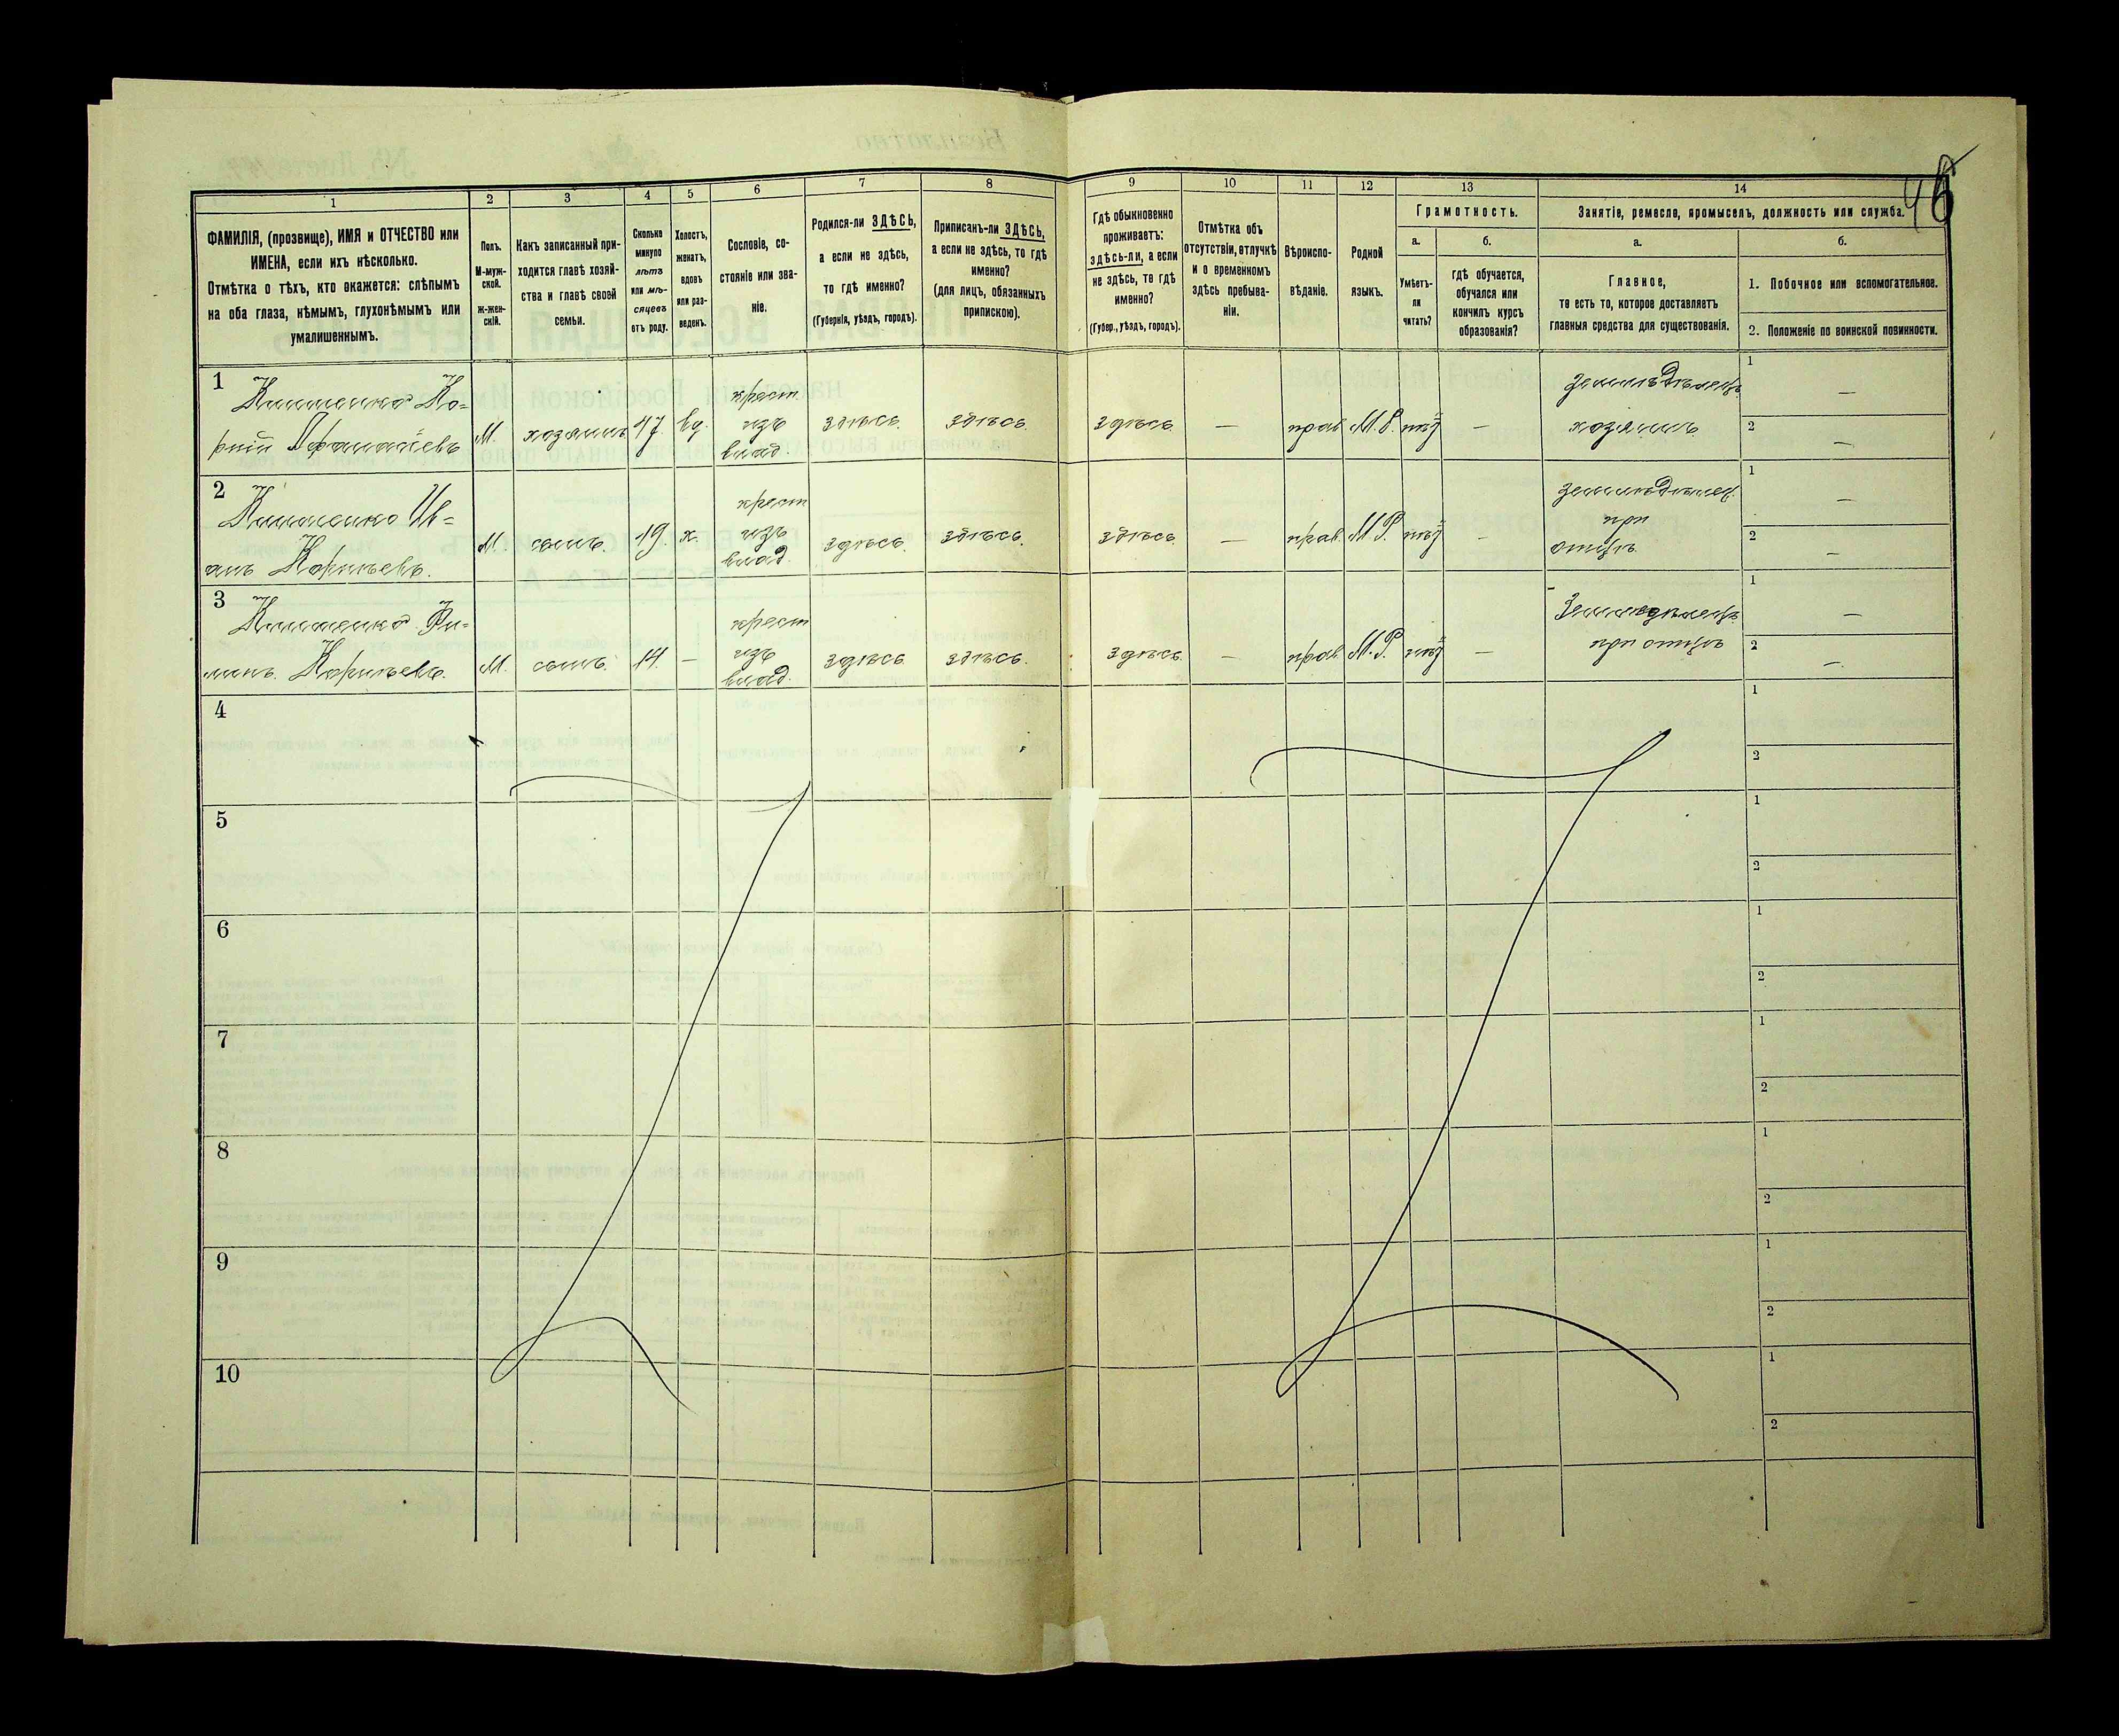 46
1
2
3
4
5
6
7
8
9
10
11
12
13
14
ФАМИЛІЯ, (прозвище), ИМЯ и ОТЧЕСТВО или
ИМЕНА, если ихъ нѣсколько.
Отмѣтка о тѣхъ, кто окажется: слѣпымъ
на оба глаза, нѣмымъ, глухонѣмымъ или
умалишеннымъ.
Полъ.
М-муж-
ской.
Ж-жен-
скій.
Какъ записанный при-
ходится главѣ хозяй-
ства и главѣ своей
семьи.
Сколько
минуло
лѣтъ
или мѣ-
сяцевъ
отъ роду.
Холостъ,
женатъ,
вдовъ
или раз-
веденъ.
Сословіе, со-
стояніе или зва-
ніе.
Родился-ли ЗДѢСЬ,
а если не здѣсь,
то гдѣ именно?
(Губернія, уѣздъ, городъ).
Приписанъ-ли ЗДѢСЬ,
а если не здѣсь, то гдѣ
именно?
(для лицъ, обязанныхъ
припискою).
Гдѣ обыкновенно
проживаетъ:
здѣсь-ли, а если
не здѣсь, то гдѣ
именно?
(Губер., уѣздъ, городъ).
Отмѣтка объ
отсутствіи, отлучкѣ
и о временномъ
здѣсь пребыва-
ніи.
Вѣроиспо-
вѣданіе.
Родной
языкъ.
Грамотность.
а.
Умѣетъ-
ли
читать?
б.
гдѣ обучается,
обучался или
кончилъ курсъ
образованія?
Занятіе, ремесло, промыселъ, должность или служба.
а.
Главное,
то есть то, которое доставляетъ
главныя средства для существованія.
б.
1. Побочное или вспомогательное.
2. Положеніе по воинской повинности.
1
М.
хозяинъ
47.
вд.
крест.
изъ
влад.
здѣсь.
здѣсь.
здѣсь.
—
прав.
М.Р.
—
земледѣлецъ
хозяинъ
1
—
2
—
2
М.
сынъ.
19.
х.
крест
изъ
влад.
здѣсь.
здѣсь.
здѣсь.
—
прав.
М.Р.
—
земледѣлец.
при
отцѣ.
1
—
2
—
3
М.
сынъ.
14.
—
крест
изъ
влад.
здѣсь.
здѣсь.
здѣсь.
—
прав.
М.Р.
—
Земледѣлецъ
при отцѣ
1
—
2
—
4
1
2
5
1
2
6
1
2
7
1
2
8
1
2
9
1
2
10
1
2